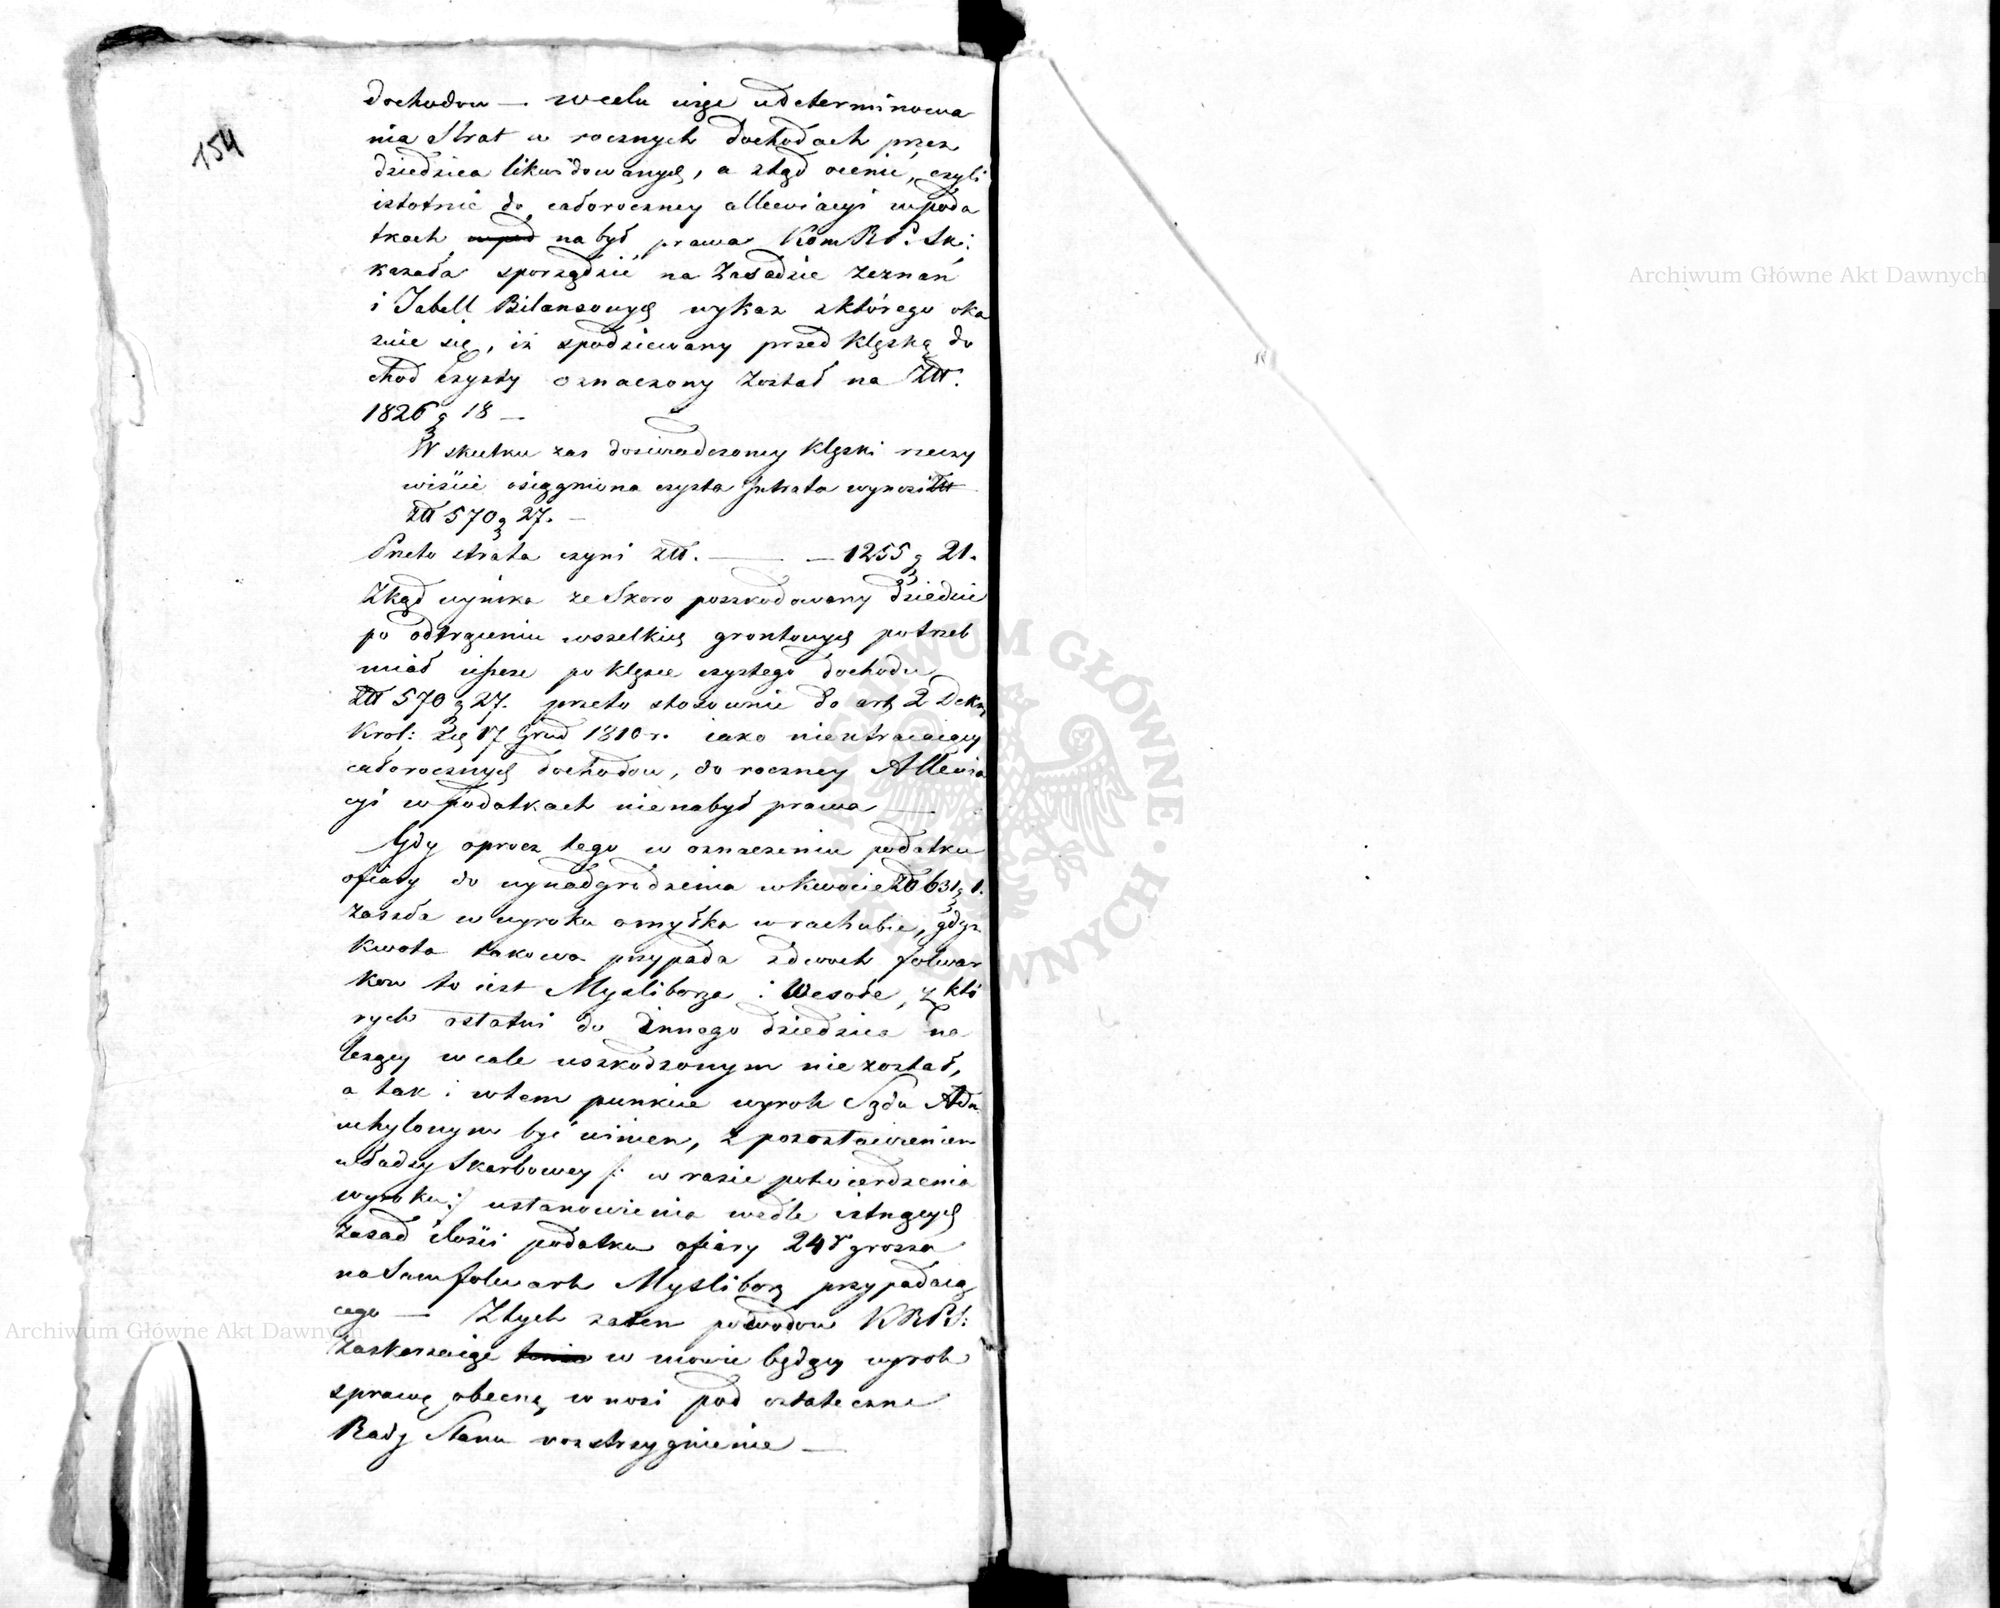 154
dochodow — w celu więc udeterminowa
nia Strat w rocznych dochodach przez
dziedzica likwidowanych, a ztąd ocenić, czyli
istotnie do całoroczney allewiacyi w poda
tkach nabył prawa Kom R P. Sk:
kazała sporządzić na Zasadzie zeznań
i Tabell Bilansowych wykaz z którego oka
zuie się, iż spodziewany przed klęską do
chód Czysty oznaczony został na Złł.
1826 g 18 —
W skutku zas doswiadczoney klęski rzeczy
wiście osiągniona czysta Jntrata wynosi
złł 570 g 27. —
Przeto strata czyni złł. — — 1255 g 21.
Zkąd wynika ze Skoro poszkodowany dziedzic
po odtrąceniu wszelkich grontowych potrzeb
miał ieszcze po klęsce czystego dochodu
złł 570 g 27. przeto stosownie do art 2 Dekr
Krol: z d 17 Grud 1810 r. iako nieutracaiący
całorocznych dochodow, do roczney Allewia
cyi w podatkach nienabył prawa —
Gdy oprocz tego w oznaczeniu podatku
ofiary do wynadgrodzenia w kwocie Złł 631 g 1.
zaszła w wyroku omyłka w rachubie, gdyż
kwota takowa przypada z dwoch folwar
kow to iest Mysliborza i Wesołe, z któ
rych ostatni do innego dziedzica na
leżący wcale uszkodzonym nie został,
a tak i w tem punkcie wyrok Sądu Adm.
uchylonym być winien, z pozostawieniem
władzy Skarbowey /: w razie potwierdzenia
wyroku :/ ustanowienia wedle istnących
zasad ilości podatku ofiary 24º grosza
na Sam folwark Mysliborz przypadaią
cego — Z tych zatem powodow K R P S:
Zaskarzaiąc w mowie będący wyrok
sprawę obecną wnosi pod ostateczne
Rady Stanu rozstrzygnienie —
Archiwum Główne Akt Dawnych
Archiwum Główne Akt Dawnych
ARCHIWUM GŁÓWNE AKT DAWNYCH